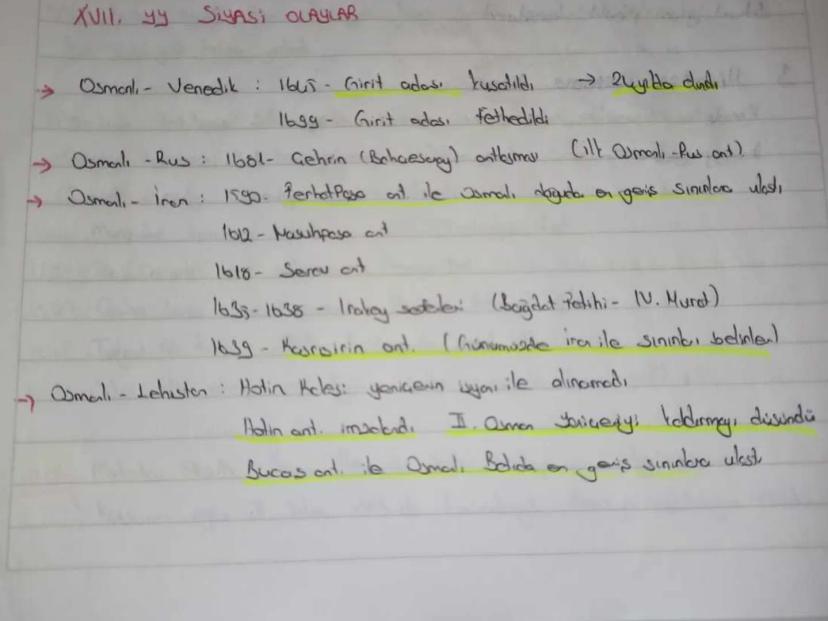 XVII. yy SİYASİ OLAYLAR
→ Osmanlı - Venedik : 1645 - Girit adası kuşatıldı → 24 yılda alındı
1699 - Girit adası fethedildi
→ Osmanlı - Rus : 1681 - Çehrin (Bahçesaray) antlaşması (ilk Osmanlı - Rus ant).
→ Osmanlı - İran : 1590 - Ferhatpaşa ant. ile Osmanlı doğuda en geniş sınırlara ulaştı
1612 - Nasuhpaşa ant
1618 - Serav ant
1635-1638 - Irakey seferleri (Bağdat Fatihi - IV. Murat)
1639 - Kasrışirin ant. (Günümüzde iran ile sınırları belirlen)
→ Osmanlı - Lehistan : Hotin Kalesi yeniçerin isyanı ile alınamadı
Hotin ant. imzalandı. II. Osman Yeniçeriyi kaldırmayı düşündü
Bucaş ant. ile Osmanlı Batıda en geniş sınırlara ulaştı